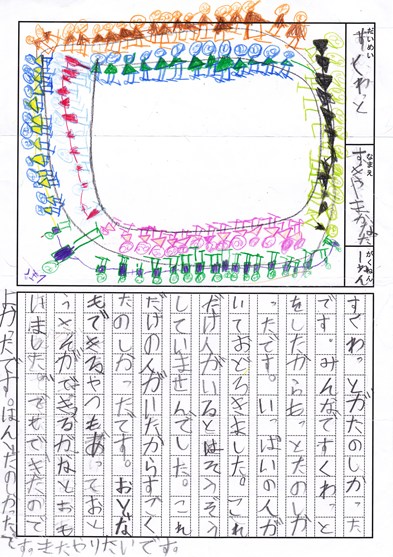 だいめい
すくわっと
なまえ
がくねん
一ねん
すくわっとがたのしかった
です。みんなですくわっと
をしたからもっとたのしか
ったです。いっぱいの人が
いておどろきました。これ
だけ人がいるとはそうぞう
していませんでした。これ
だけの人がいたからすごく
たのしかったです。おとな
もできるやつもあっておと
うさんができるかなとおも
いました。でもできたので
よかたです。ほんとたのかたで
す。またやりたいです。